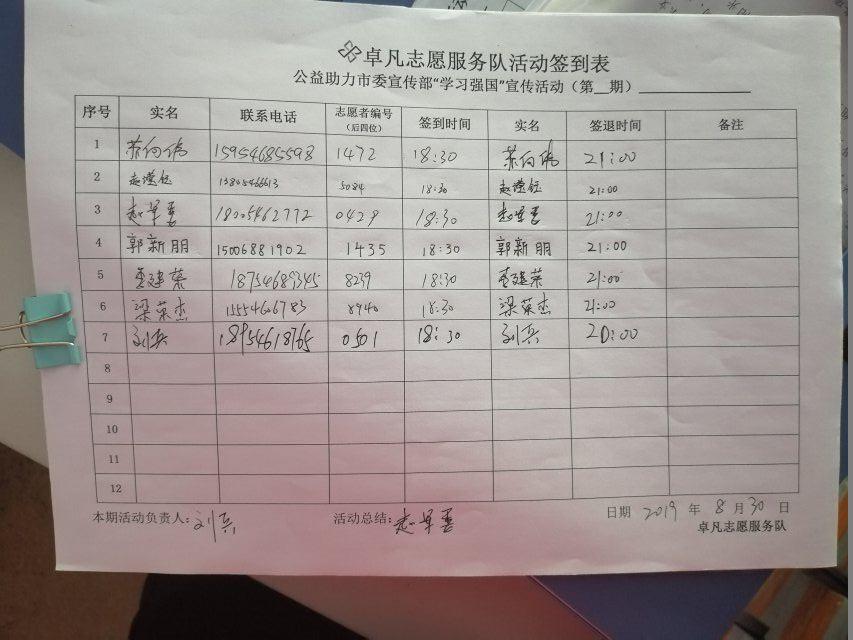 卓凡志愿服务队活动签到表
公益助力市委宣传部“学习强国”宣传活动（第__期）
序号 实名 联系电话 志愿者编号（后四位） 签到时间 实名 签退时间 备注
1 苏向伟 15954685598 1472 18:30 苏向伟 21:00
2 赵滢钰 13805466613 5084 18:30 赵滢钰 21:00
3 赵早善 18005462772 0429 18:30 赵早善 21:00
4 郭新朋 15006881902 1435 18:30 郭新朋 21:00
5 建荣 18754689345 8239 18:30 建荣 21:00
6 梁荣杰 15554606783 8940 18:30 梁荣杰 21:00
7 刘兵 18954618765 0501 18:30 刘兵 20:00
8
9
10
11
12
本期活动负责人:刘兵 活动总结:赵早善 日期 2019 年 8 月 30 日
卓凡志愿服务队